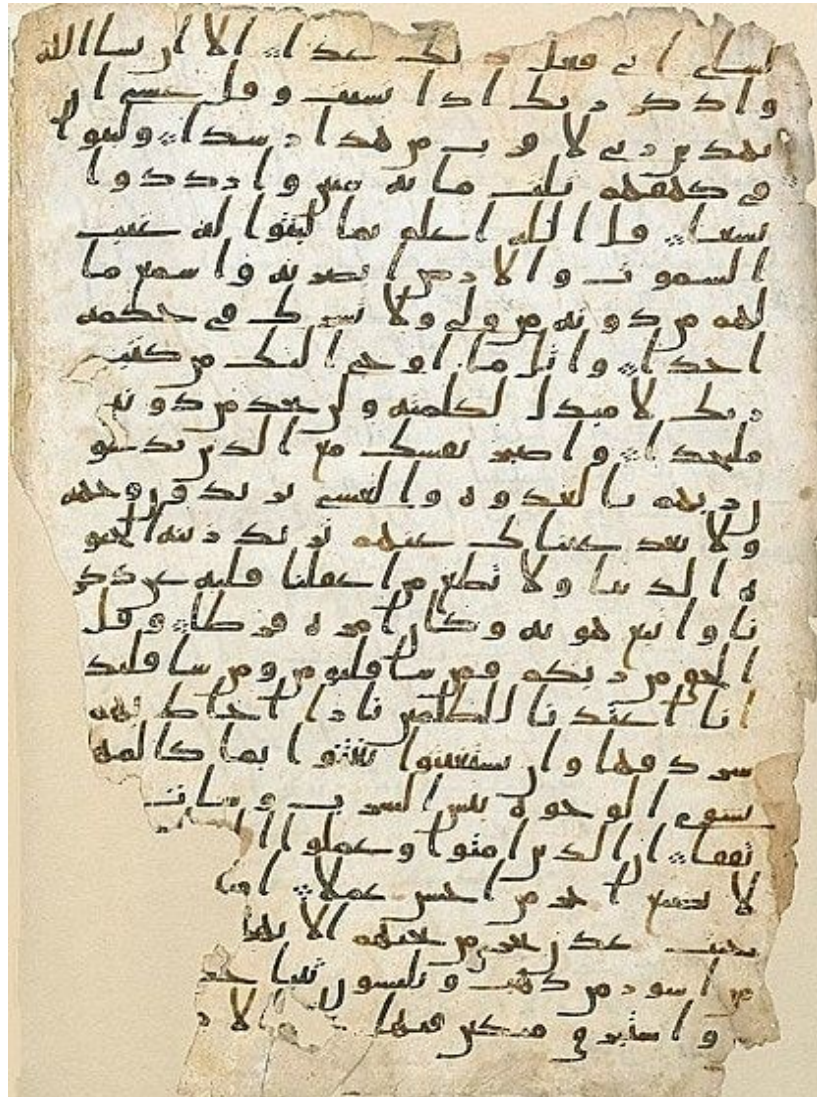 لشاي اني فعل ذلك غدا الا ان يشا الله
واذكر ربك اذا نسيت وقل عسى ان
يهدين ربي لاقرب من هذا رشدا ولبثوا
في كهفهم ثلث مائة سنين وازددوا
تسعا قل الله اعلم بما لبثوا له غيب
السموت والارض ابصر به واسمع ما
لهم من دونه من ولي ولا يشرك في حكمه
احدا واتل ما اوحي اليك من كتب
ربك لا مبدل لكلمته ولن تجد من دونه
ملتحدا واصبر نفسك مع الذين يدعو
ن ربهم بالغدوة والعشي يريدون وجهه
ولا تعد عيناك عنهم تريد زينة الحيو
ة الدنيا ولا تطع من اغفلنا قلبه عن ذكر
نا واتبع هويه وكان امره فرطا وقل
الحق من ربكم فمن شا فليومن ومن شا فليك
انا اعتدنا للظلمين نارا احاط بهم
سردقها وان يستغيثوا يغثوا بما كالمه
يشوي الوجوه بئس الشرب وسات
تفقا ان الذين امنوا وعملوا ا
لا نضيع اجر من احسن عملا
جنت عدن تجري من تحتهم الانه
من اسور من ذهب ويلبسون ثيبا
واستبرق متكين فيها